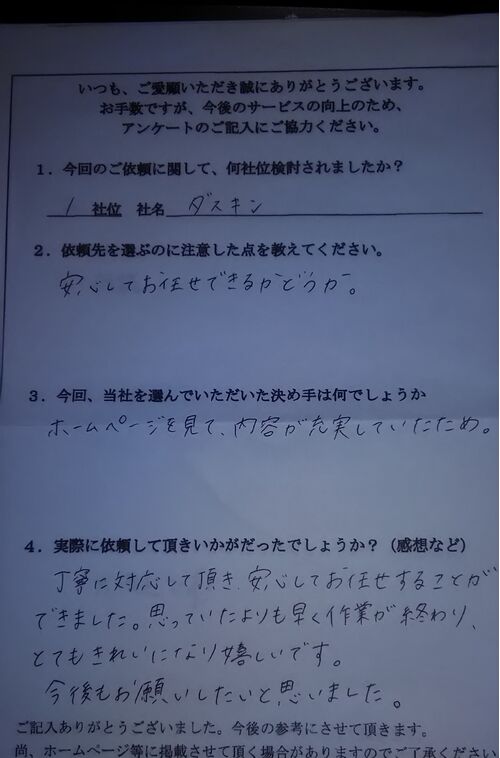 いつも、ご愛願いただき誠にありがとうございます。
お手数ですが、今後のサービスの向上のため、
アンケートのご記入にご協力ください。
1．今回のご依頼に関して、何社位検討されましたか？
1 社位 社名 ダスキン
2．依頼先を選ぶのに注意した点を教えてください。
安心してお任せできるかどうか。
3．今回、当社を選んでいただいた決め手は何でしょうか
ホームページを見て、内容が充実していたため。
4．実際に依頼して頂きいかがだったでしょうか？（感想など）
丁寧に対応して頂き、安心してお任せすることが
できました。思っていたよりも早く作業が終わり、
とてもきれいになり嬉しいです。
今後もお願いしたいと思いました。
ご記入ありがとうございました。今後の参考にさせて頂きます。
尚、ホームページ等に掲載させて頂く場合がありますのでご了承ください